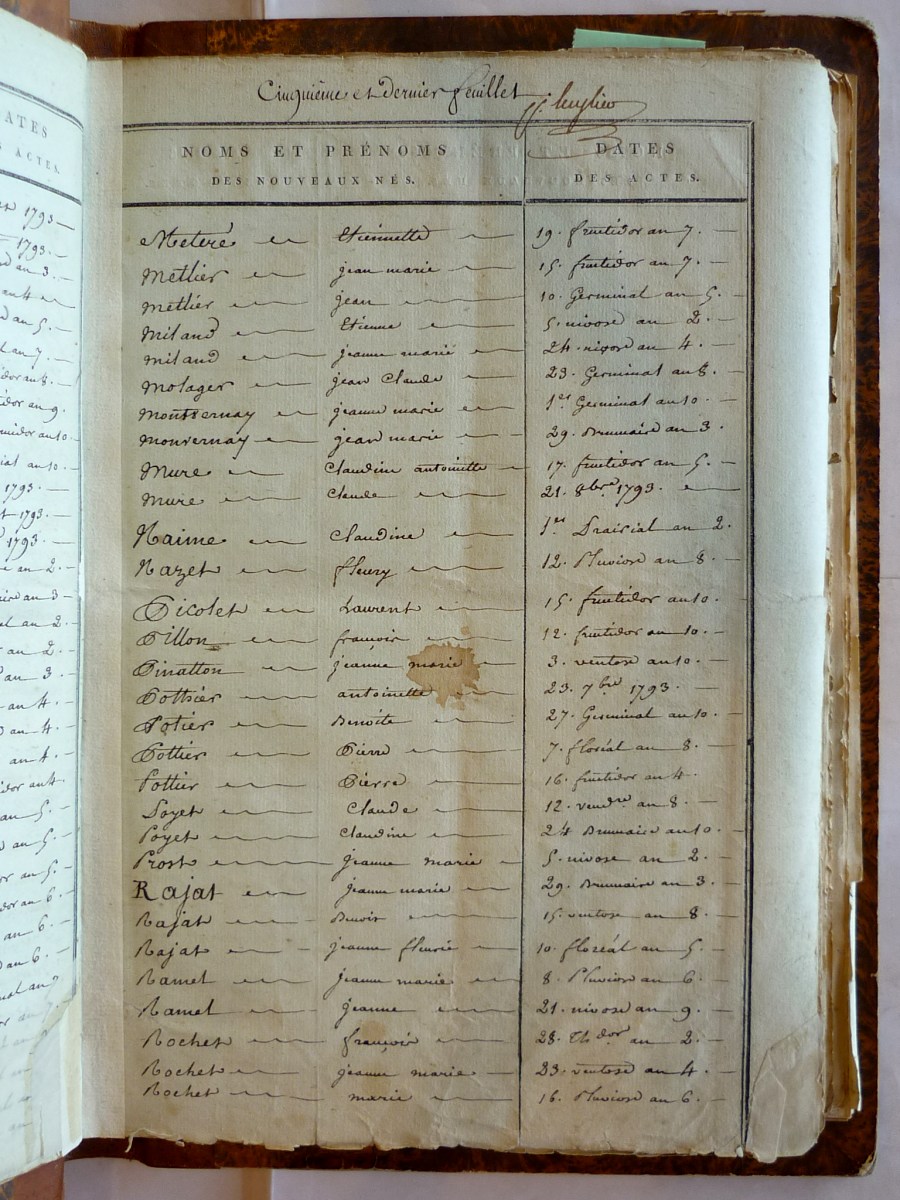 Cinquième et dernier feuillet
NOMS ET PRÉNOMS DATES
DES NOUVEAUX NÉS. DES ACTES.
Meteré Etiennette 19. fructidor an 7.
Metlier jean marie 15. fructidor an 7.
Metlier jean 10. Germinal an 5.
Miland Etienne 5. nivose an 2.
Miland jeanne marie 24. nivose an 4.
Molager jean Claude 23. Germinal an 8.
Monternay jeanne marie 1er Germinal an 10.
Monternay jean marie 29. Brumaire an 3.
Mure Claudine antoinette 17. fructidor an 5.
Mure Claude 21. 8bre 1793.
Naime Claudine 1er Prairial an 2.
Nazet fleury 12. Pluviose an 8.
Picolet Laurent 15. fructidor an 10.
Pillon françois 12. fructidor an 10.
Pinatton jeanne marie 3. ventose an 10.
Pothier antoinette 23. 7bre 1793.
Potier Benoite 27. Germinal an 10.
Pottier Pierre 7. floréal an 8.
Pottier Pierre 16. fructidor an 4.
Poyet Claude 12. vendre an 8.
Poyet Claudine 24 Brumaire an 10.
Prost jeanne marie 5. nivose an 2.
Rajat jeanne marie 29. Brumaire an 3.
Rajat Benoit 15. ventose an 8.
Rajat jeanne fleurie 10. floréal an 5.
Ramel jeanne marie 8. Pluviose an 6.
Ramel jeanne 21. nivose an 9.
Rochet françois 28. Th dor an 2.
Rochet jeanne marie 23. ventose an 4.
Rochet marie 16. Pluviose an 6.